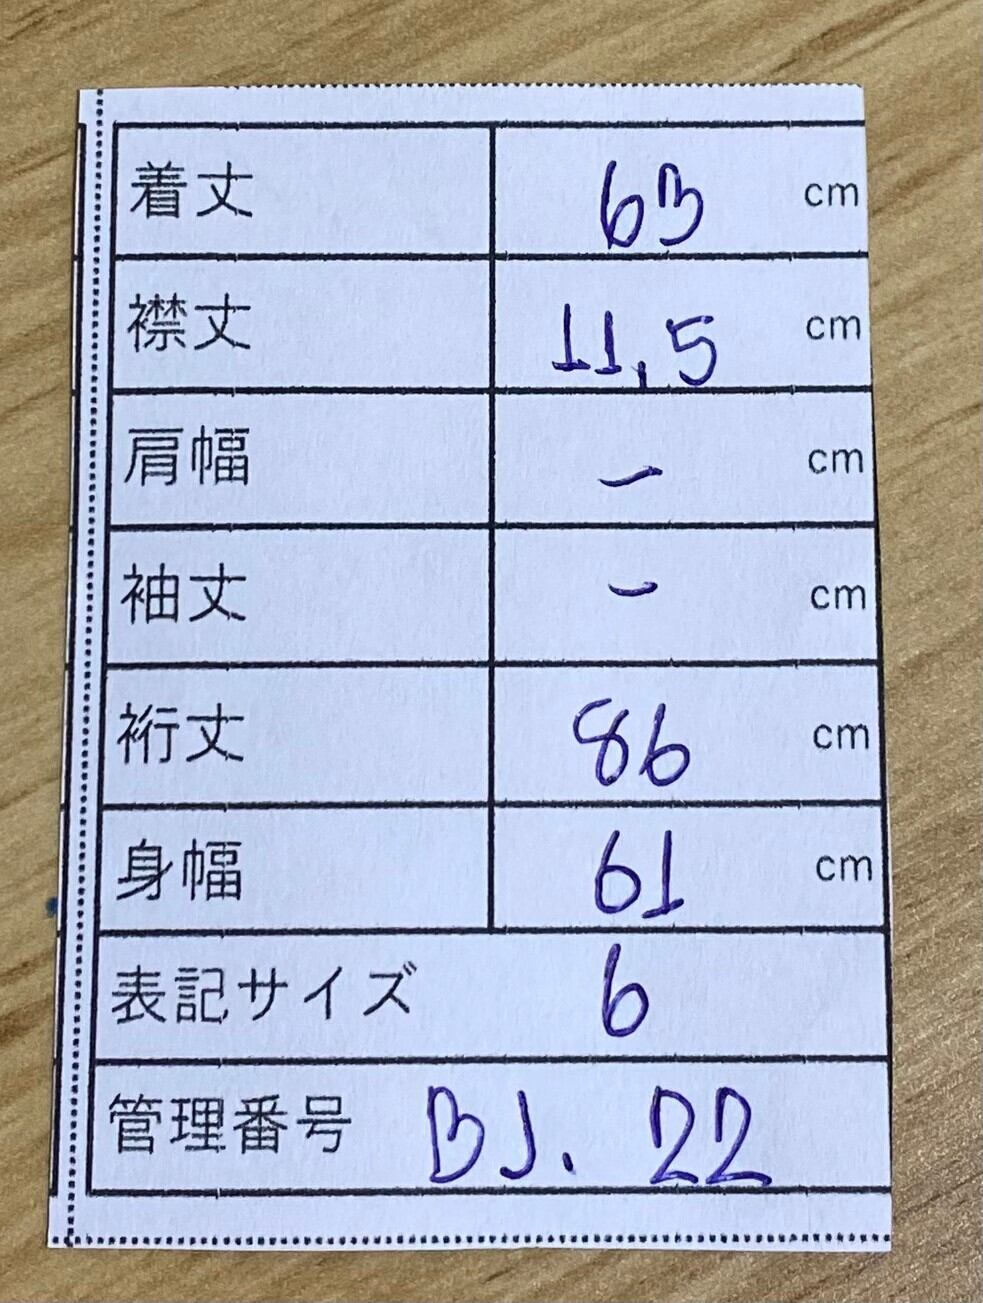 着丈 63 cm
襟丈 11,5 cm
肩幅 - cm
袖丈 - cm
裄丈 86 cm
身幅 61 cm
表記サイズ 6
管理番号 BJ. 22